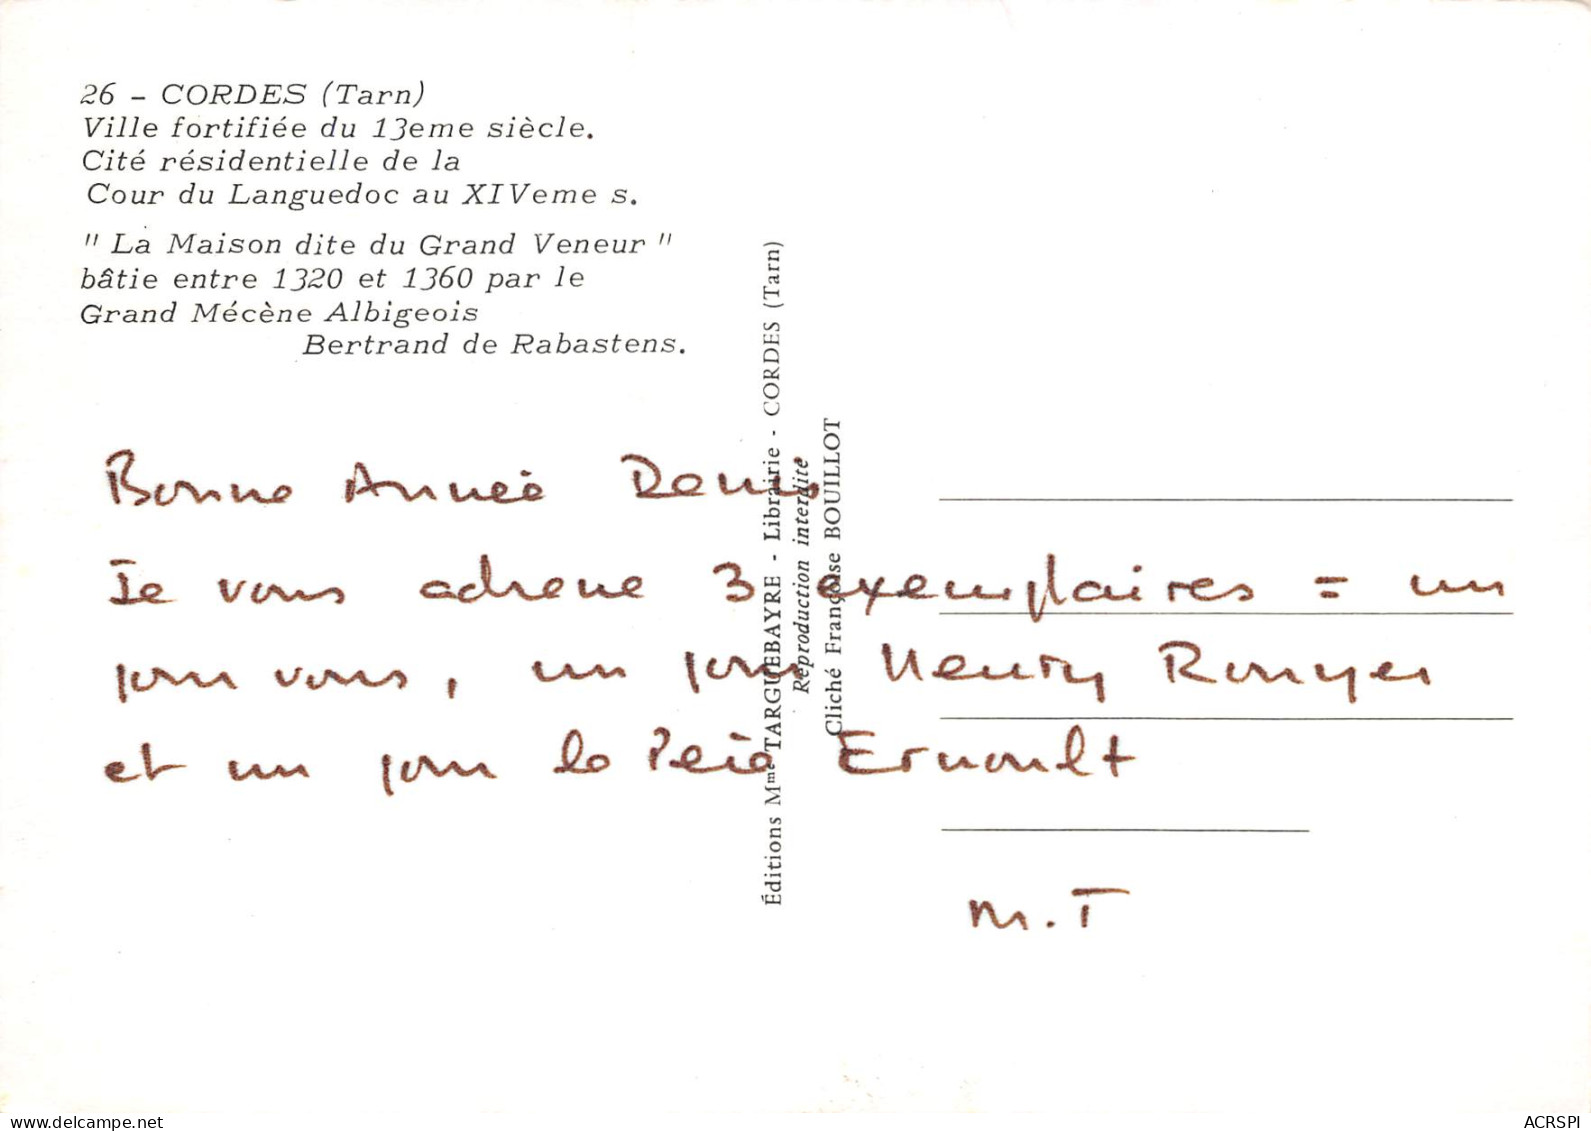 26 - CORDES (Tarn)
Ville fortifiée du 13eme siècle.
Cité résidentielle de la
Cour du Languedoc au XIVeme s.
" La Maison dite du Grand Veneur "
bâtie entre 1320 et 1360 par le
Grand Mécène Albigeois
Bertrand de Rabastens.
Bonne Année Denis
Je vous adresse 3 exemplaires = un
pour vous, un pour Henry Rouyer
et un pour le Père Ernoult
M.T
Éditions Mme TARGUEBAYRE - Librairie - CORDES (Tarn)
Reproduction interdite
Cliché Françoise BOUILLOT
ACRSPI